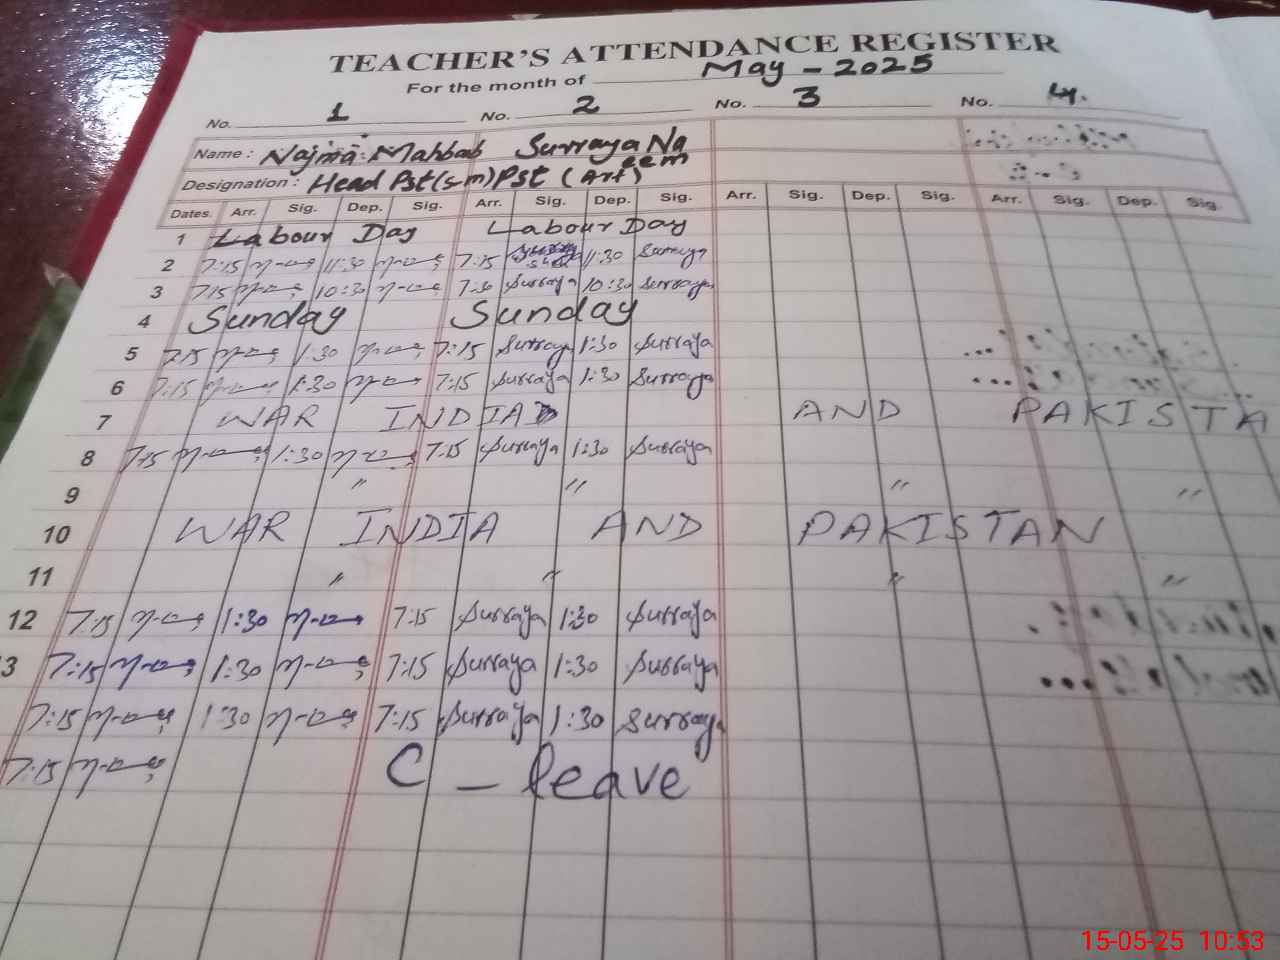 TEACHER'S ATTENDANCE REGISTER
For the month of May - 2025
No. 1 No. 2 No. 3 No. 4.
Name: Najma Mahbab Surraya Naeem
Designation: Head Pst(sm) Pst (Arf)
Dates. Arr. Sig. Dep. Sig. Arr. Sig. Dep. Sig. Arr. Sig. Dep. Sig. Arr. Sig. Dep. Sig.
1 Labour Day Labour Day
2 7:15 11:30 7:15 11:30 Surraya
3 7:15 10:30 7:30 Surraya 10:30 Surraya
4 Sunday Sunday
5 7:15 1:30 7:15 Surraya 1:30 Surraya
6 7:15 1:30 7:15 Surraya 1:30 Surraya
7 WAR INDIA AND PAKISTA
8 7:15 1:30 7:15 Surraya 1:30 Surraya
9 " " " "
10 WAR INDIA AND PAKISTAN
11 " " " "
12 7:15 1:30 7:15 Surraya 1:30 Surraya
3 7:15 1:30 7:15 Surraya 1:30 Surraya
7:15 1:30 7:15 Surraya 1:30 Surraya
7:15 C - leave
15-05-25 10:53